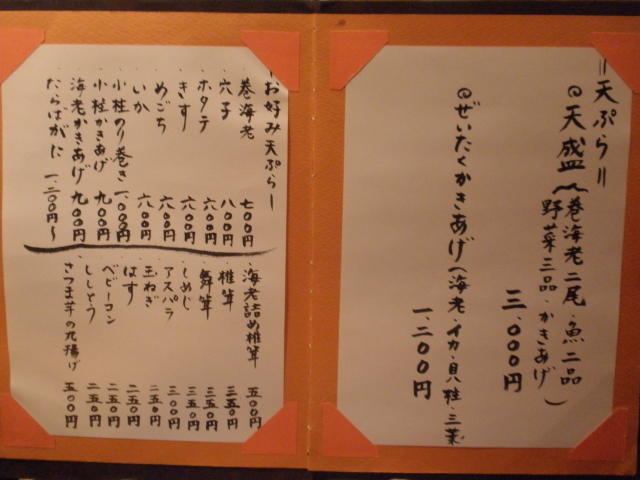 =天ぷら=
◎天盛(巻海老二尾・魚二品
野菜三品・かきあげ)
三、000円
◎ぜいたくかきあげ(海老・イカ・貝柱・三葉
一、二00円
ーお好み天ぷらー
巻海老 七00円
穴子 八00円
ホタテ 六00円
きす 六00円
めごち 六00円
いか 六00円
小柱のり巻き 一、000円
小柱かきあげ 九00円
海老かきあげ 九00円
たらばがに 一、二00円〜
海老詰め椎茸 五00円
椎茸 三五0円
舞茸 三五0円
しめじ 三五0円
アスパラ 三00円
玉ねぎ 二五0円
はす 二五0円
ベビーコン 二五0円
ししとう 二五0円
さつま芋の丸揚げ 五00円